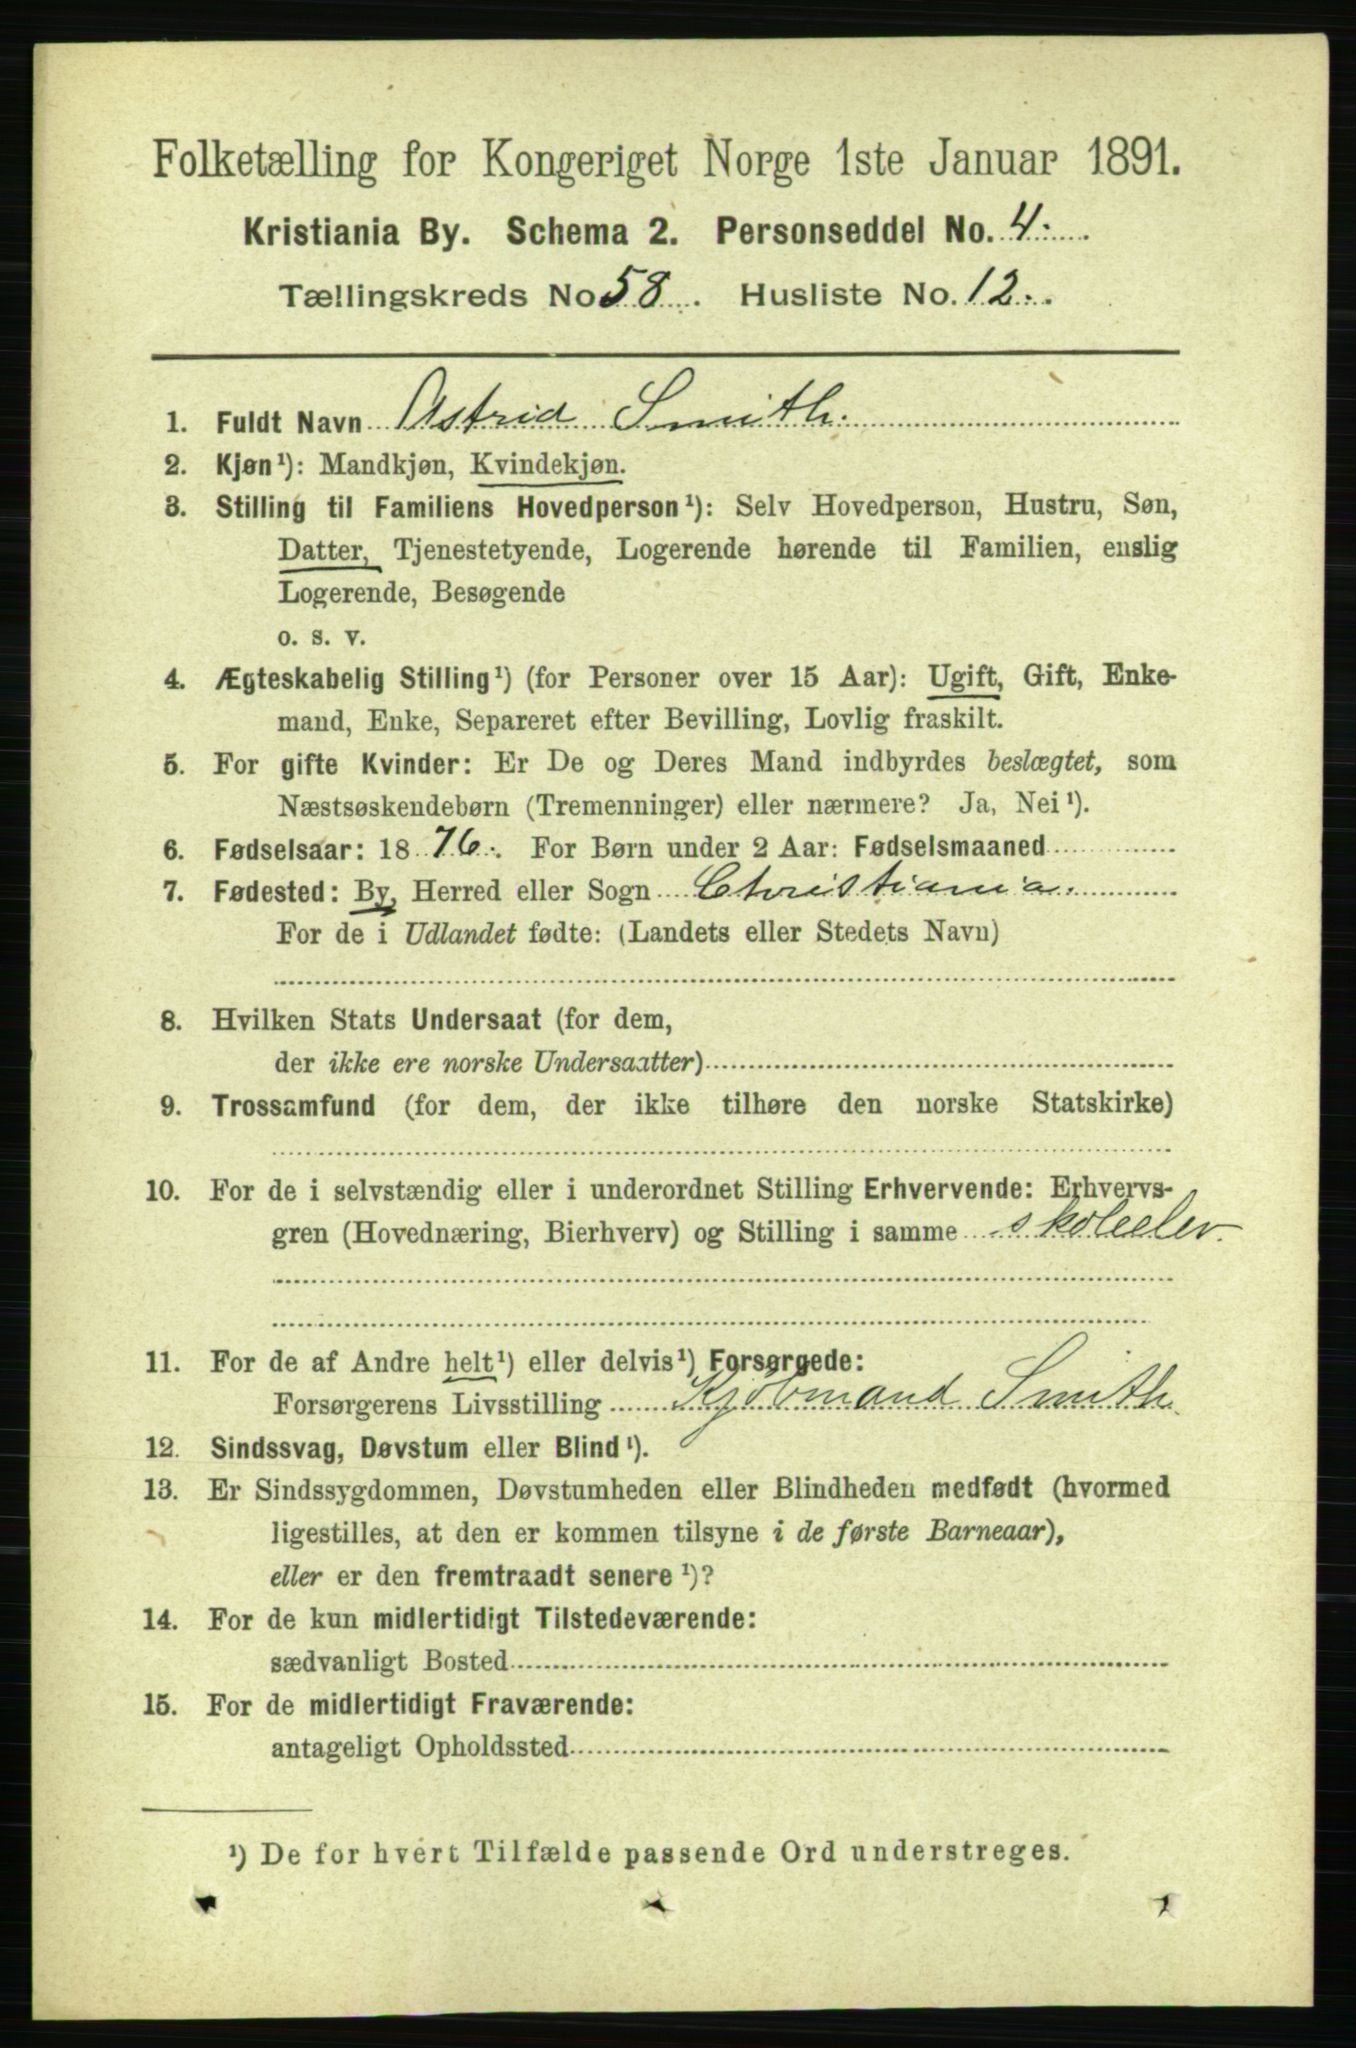 Folketælling for Kongeriget Norge 1ste Januar 1891.
Kristiania By. Schema 2. Personseddel No. 4.
Tællingskreds No 58. Husliste No. 12.
1. Fuldt Navn Astrid Smith.
2. Kjøn¹): Mandkjøn, Kvindekjøn.
3. Stilling til Familiens Hovedperson¹): Selv Hovedperson, Hustru, Søn,
Datter, Tjenestetyende, Logerende hørende til Familien, enslig
Logerende, Besøgende
o. s. v.
4. Ægteskabelig Stilling¹) (for Personer over 15 Aar): Ugift, Gift, Enke-
mand, Enke, Separeret efter Bevilling, Lovlig fraskilt.
5. For gifte Kvinder: Er De og Deres Mand indbyrdes beslægtet, som
Næstsøskendebørn (Tremenninger) eller nærmere? Ja, Nei¹).
6. Fødselsaar: 1876. For Børn under 2 Aar: Fødselsmaaned
7. Fødested: By, Herred eller Sogn Christiania.
For de i Udlandet fødte: (Landets eller Stedets Navn)
8. Hvilken Stats Undersaat (for dem,
der ikke ere norske Undersaatter)
9. Trossamfund (for dem, der ikke tilhøre den norske Statskirke)
10. For de i selvstændig eller i underordnet Stilling Erhvervende: Erhvervs-
gren (Hovednæring, Bierhverv) og Stilling i samme skoleelev.
11. For de af Andre helt¹) eller delvis¹) Forsørgede:
Forsørgerens Livsstilling Kjøbmand Smith.
12. Sindssvag, Døvstum eller Blind¹).
13. Er Sindssygdommen, Døvstumheden eller Blindheden medfødt (hvormed
ligestilles, at den er kommen tilsyne i de første Barneaar),
eller er den fremtraadt senere¹)?
14. For de kun midlertidigt Tilstedeværende:
sædvanligt Bosted
15. For de midlertidigt Fraværende:
antageligt Opholdssted
¹) De for hvert Tilfælde passende Ord understreges.